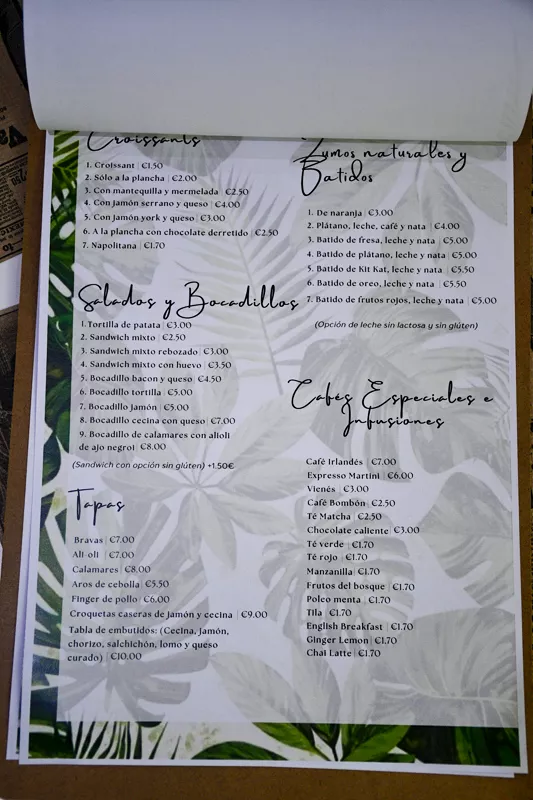 Croissants
1. Croissant | €1.50
2. Sólo a la plancha | €2.00
3. Con mantequilla y mermelada | €2.50
4. Con jamón serrano y queso | €4.00
5. Con jamón york y queso | €3.00
6. A la plancha con chocolate derretido | €2.50
7. Napolitana | €1.70
Salados y Bocadillos
1. Tortilla de patata | €3.00
2. Sandwich mixto | €2.50
3. Sandwich mixto rebozado | €3.00
4. Sandwich mixto con huevo | €3.50
5. Bocadillo bacon y queso | €4.50
6. Bocadillo tortilla | €5.00
7. Bocadillo jamón | €5.00
8. Bocadillo cecina con queso | €7.00
9. Bocadillo de calamares con alioli
de ajo negro| | €8.00
(Sandwich con opción sin glúten) +1.50€
Tapas
Bravas | €7.00
Ali-oli | €7.00
Calamares | €8.00
Aros de cebolla | €5.50
Finger de pollo | €6.00
Croquetas caseras de jamón y cecina | €9.00
Tabla de embutidos: (Cecina, jamón,
chorizo, salchichón, lomo y queso
curado) | €10.00
Zumos naturales y
Batidos
1. De naranja | €3.00
2. Plátano, leche, café y nata | €4.00
3. Batido de fresa, leche y nata | €5.00
4. Batido de plátano, leche y nata | €5.00
5. Batido de Kit Kat, leche y nata | €5.50
6. Batido de oreo, leche y nata | €5.50
7. Batido de frutos rojos, leche y nata | €5.00
(Opción de leche sin lactosa y sin glúten)
Cafés Especiales e
Infusiones
Café Irlandés | €7.00
Expresso Martini | €6.00
Vienés | €3.00
Café Bombón | €2.50
Té Matcha | €2.50
Chocolate caliente | €3.00
Té verde | €1.70
Té rojo | €1.70
Manzanilla | €1.70
Frutos del bosque | €1.70
Poleo menta | €1.70
Tila | €1.70
English Breakfast | €1.70
Ginger Lemon | €1.70
Chai Latte | €1.70